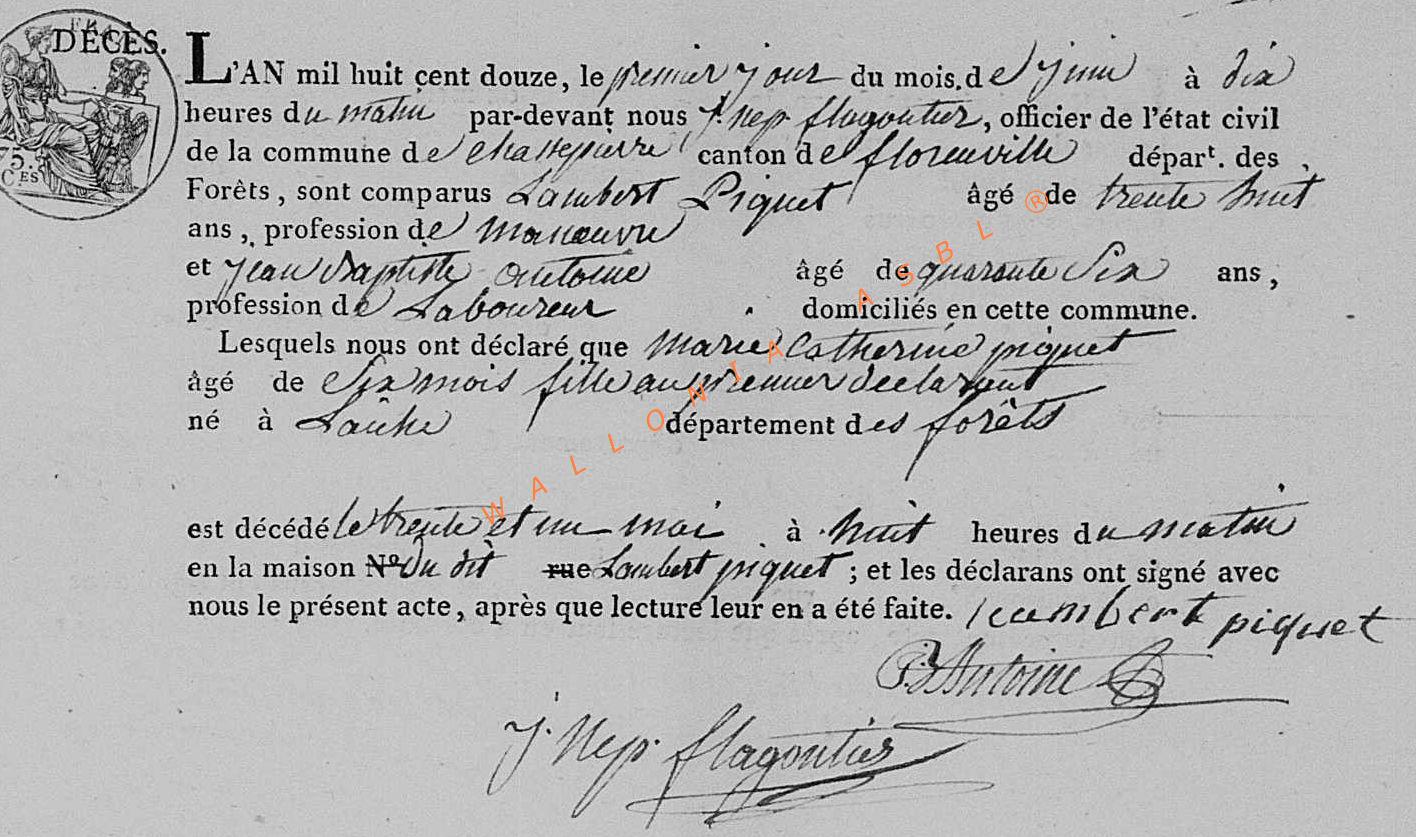 DÉCÈS.
75. CES
L'AN mil huit cent douze, le premier jour du mois de juin à dix
heures du matin par-devant nous J. nep. flagoutier, officier de l'état civil
de la commune de chassepierre canton de florenville départ. des
Forêts, sont comparus Lambert Piquet âgé de trente huit
ans, profession de manœuvre
et jean Baptiste antoine âgé de quarante Six ans,
profession de Laboureur domiciliés en cette commune.
Lesquels nous ont déclaré que marie Catherine piquet
âgé de Six mois fille au premier declarant
né à Laiche département des forêts
est décédé le trente et un mai à huit heures du matin
en la maison N° du dit rue Lambert piquet ; et les déclarans ont signé avec
nous le présent acte, après que lecture leur en a été faite. lambert piquet
Antoine
J. Nep. flagoutier
WALLONIA ASBL ®